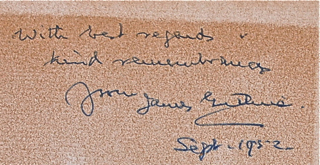 With best regards &
kind remembrances
from James Guthrie.
Sept. 1952